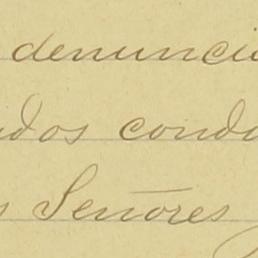 denunci
dos condo
s Señores